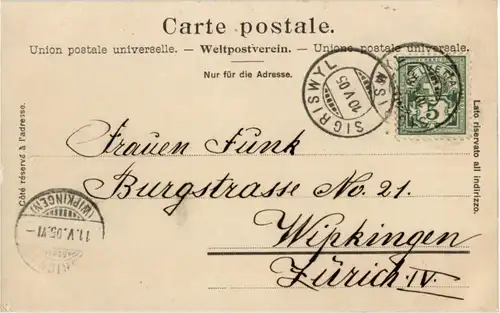 Carte postale.
Union postale universelle. — Weltpostverein. — Unione postale universale.
Nur für die Adresse.
SIGRISWYL
10.V.05
5
Côté réservé à l'adresse.
Lato riservato all indirizzo.
Frauen Funk
Burgstrasse No. 21.
Wipkingen
Zürich IV.
(WIPKINGEN)
11.V.05.VI-